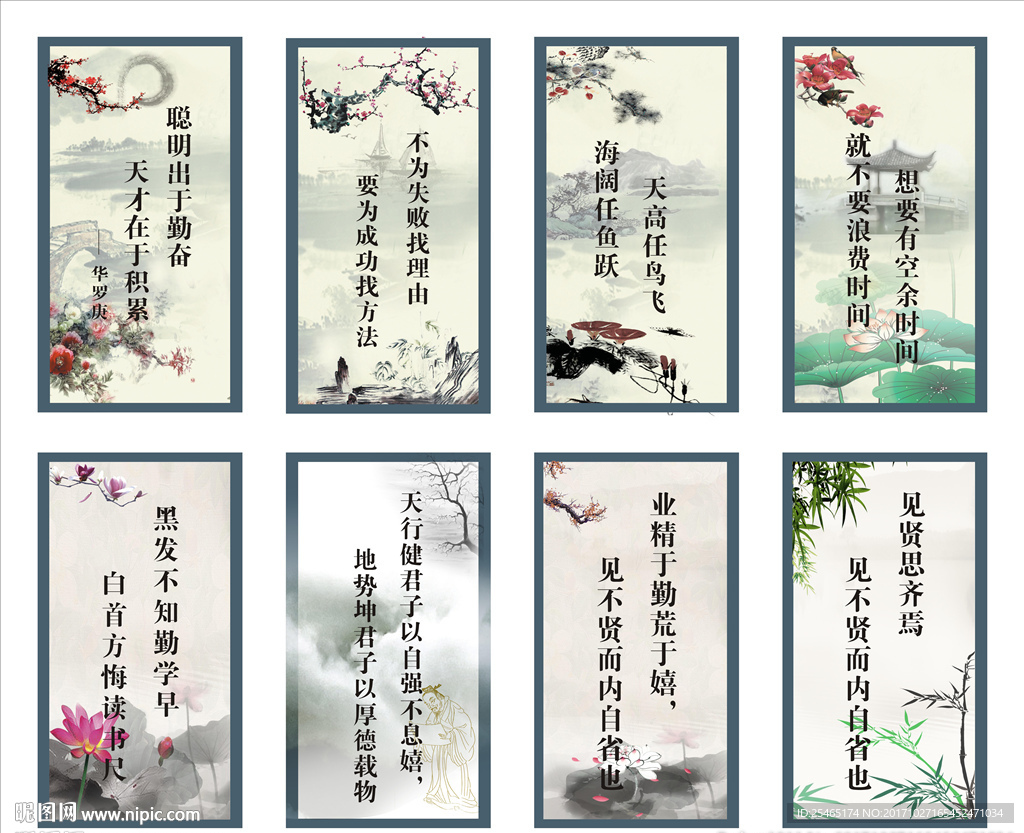 聪明出于勤奋
天才在于积累
——华罗庚
不为失败找理由
要为成功找方法
天高任鸟飞
海阔任鱼跃
想要有空余时间
就不要浪费时间
黑发不知勤学早
白首方悔读书尺
天行健君子以自强不息嬉，
地势坤君子以厚德载物
业精于勤荒于嬉，
见不贤而内自省也
见贤思齐焉
见不贤而内自省也
昵图网 www.nipic.com
ID:25465174 NO:20171027165452471034